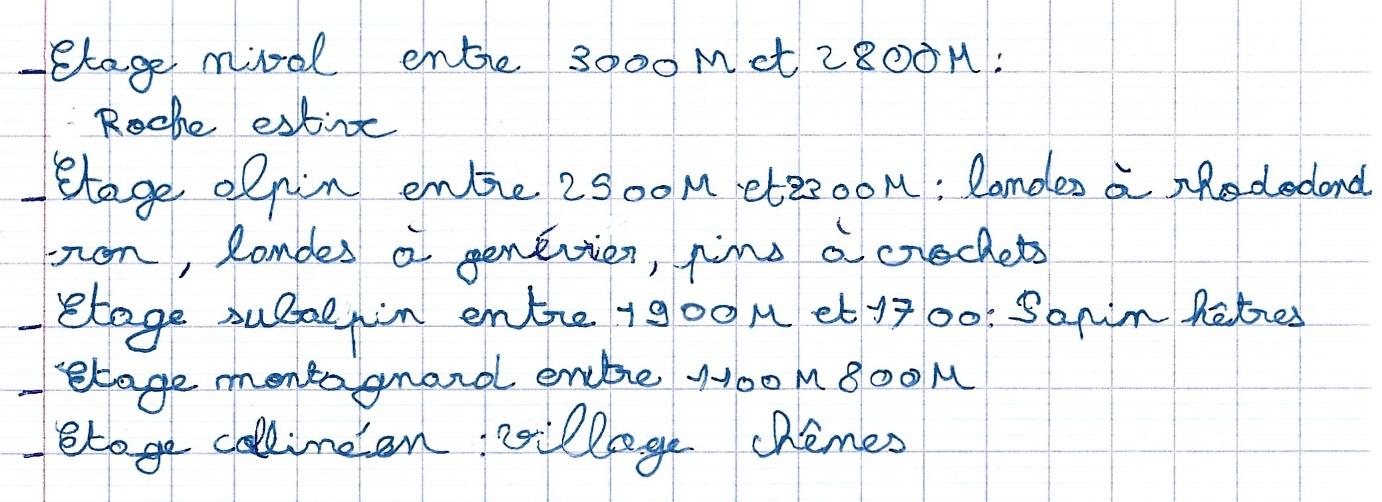 - Etage nival entre 3000 M et 2800M :
Roche estive
- Etage alpin entre 2500M et 2300M : landes à rhododend
-ron, landes à genévrier, pins à crochets
- Etage subalpin entre 1900M et 1700 : Sapin hêtres
- Etage montagnard entre 1100M 800M
- Etage collinéen : village chênes